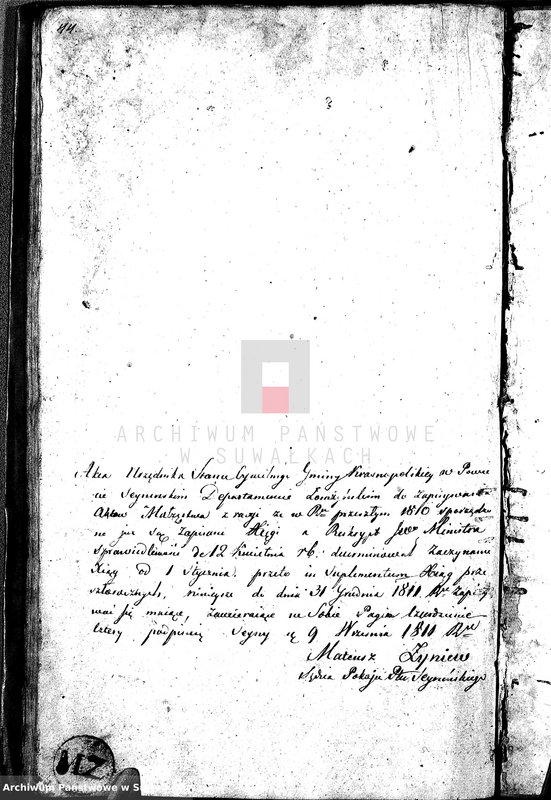 44
ARCHIWUM PAŃSTWOWE
W SUWAŁKACH
Akta Urzędnika Stanu Cywilnego Gminy Krasnopolskiey w Powie
cie Seynenskim Departamencie Łomżyńskim do zapisywania
Aktow Małzęstwa z racyi że w Rku przeszłym 1810 sporządzo
ne już są zapisane Xięgi a Reskrypt Ministra
Sprawiedliwości de 12 Kwietnia rb. zaczynanie
Xiąg od 1 Stycznia. przeto in Suplementum Xiąg prze
szłorocznych, ninieysze do dnia 31 Grudnia 1811 Rku zapisy
wać się maiące, zawieraiące na Sobie Pagin
cztery podpisuię Seyny dn. 9 Września 1811 Rku
Mateusz Zyniew
Sędzia Pokoju Ptu Seynińskiego
Archiwum Państwowe w Su